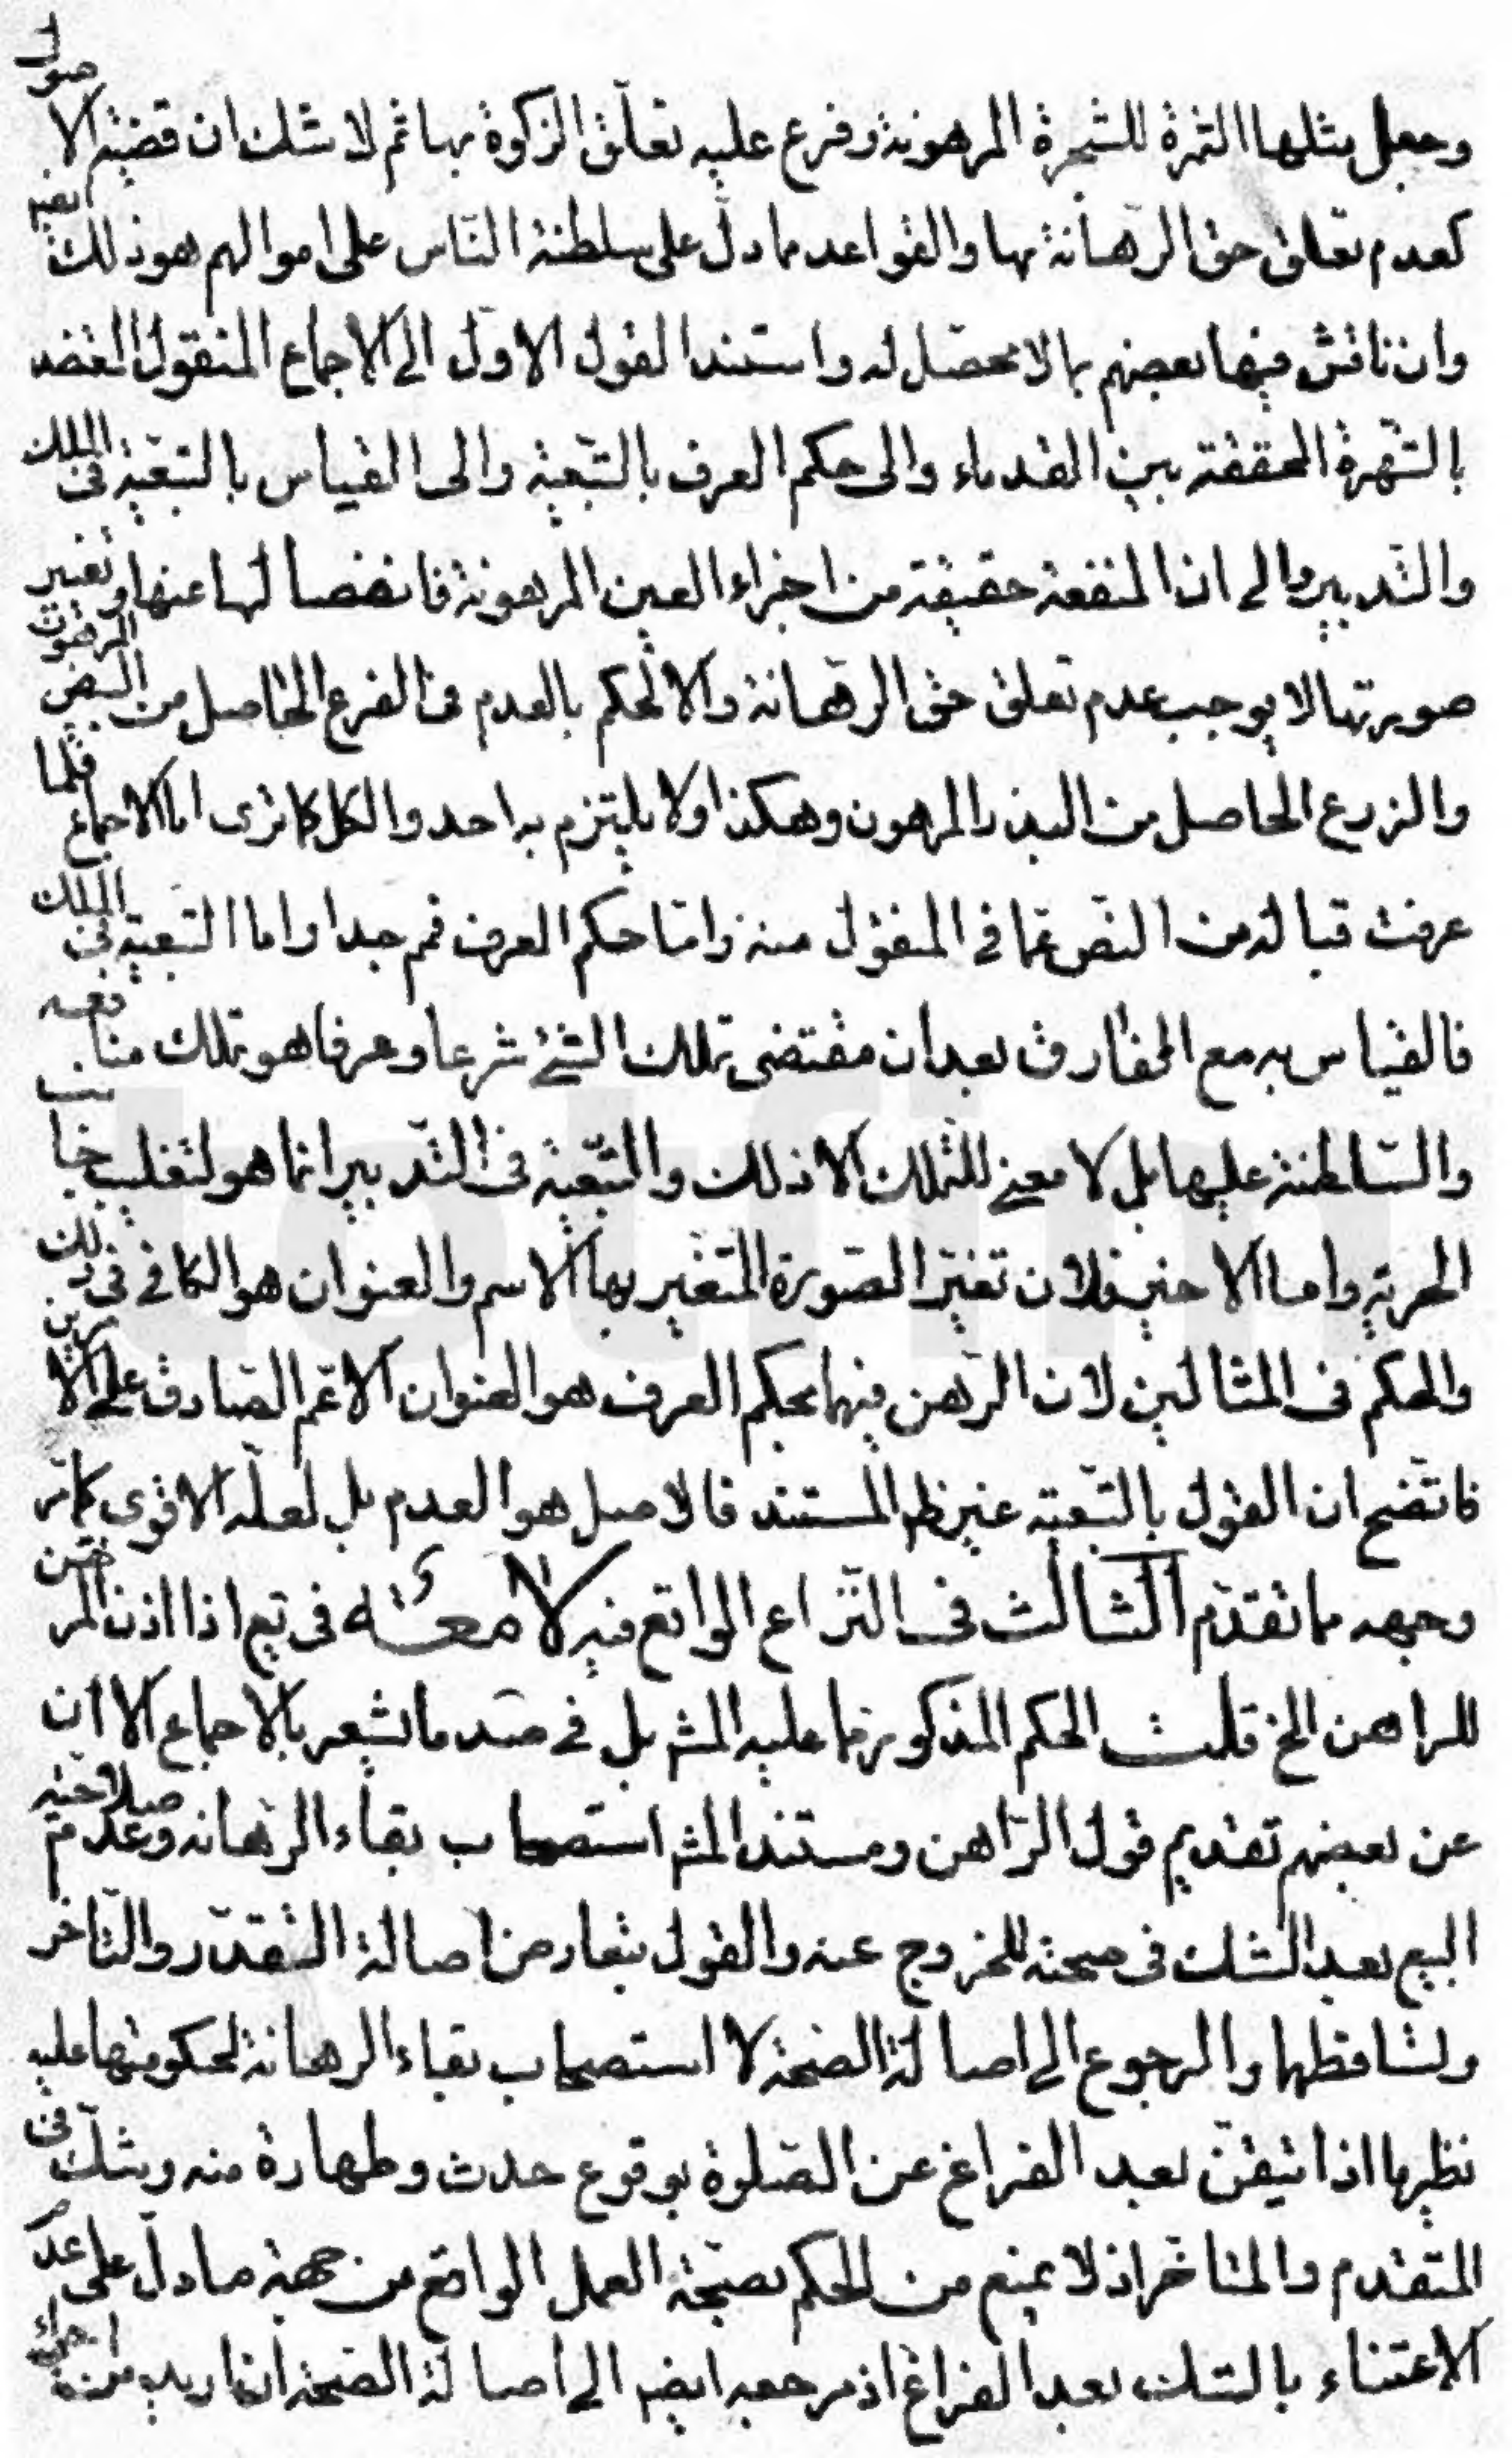 وجعل مثلها الثمرة للشجرة المرهونة وفرع عليه تعلق الزكوة بها ثم لا شك ان قضية الاصول
كعدم تعلق حق الرهانة بها والقواعد مما دل على سلطنة الناس على اموالهم هو ذلك
وان ناقش فيها بعضهم بما لا محصل له واستند القول الاول الى الاجماع المنقول المعتضد
بالشهرة المحققة بين القدماء والى حكم العرف بالتبعية والى القياس بالتبعية فى الملك
والتدبير والى ان المنفعة حقيقة من اجزاء العين المرهونة فانفصالها عنها وتغيير
صورتها لا يوجب عدم تعلق حق الرهانة والا لحكم بالعدم فى الفرع الحاصل من البيض المرهون
والزرع الحاصل من البذر المرهون وهكذا ولا يلتزم به احد والكل كما ترى اما الاجماع فلما
عرفت قبالة من النص عما فى المنقول منه واما حكم العرف فمم جدا واما التبعية فى الملك
فالقياس به مع الفارق بعد ان مقتضى تملك الشئ شرعا وعرفا هو تملك منافعه
والسلطنة عليها بل لا معنى للتملك الا ذلك والتبعية فى التدبير انما هو لتغليب جانب
الحرية واما الاخير فلان تغير الصورة المتغير بها الاسم والعنوان هو الكافى فى ذلك
والحكم فى المثالين لان الرهن فيهما بحكم العرف هو العنوان الاعم الصادق على الامرين
فاتضح ان القول بالتبعية غير ظم المستند فالاصل هو العدم بل لعله الاقوى كما مر
وجهه مما تقدم الثالث فى النزاع الواقع فيه لا معة فى بيع اذا اذن المرتهن
للراهن الخ قلت الحكم المذكور مما عليه المشهر بل فى صدد ما يشعر بالاجماع الا ان
عن بعضهم تقديم قول الراهن ومستند المشهر استصحاب بقاء الرهانة وعدم صلاحية
البيع بعد الشك فى صحته للخروج عنه والقول بتعارض اصالة التقدم والتاخر
وتساقطهما والرجوع الى اصالة الصحة لا استصحاب بقاء الرهانة لحكومتها عليه
نظيرها اذا تيقن بعد الفراغ عن الصلوة بوقوع حدث وطهارة منه ويشك فى
المتقدم والمتاخر اذ لا يمنع من الحكم بصحة العمل الواقع من جهة ما دل على عدم
الاعتناء بالشك بعد الفراغ اذ مرجعه ايضه الى اصالة الصحة ان اريد من